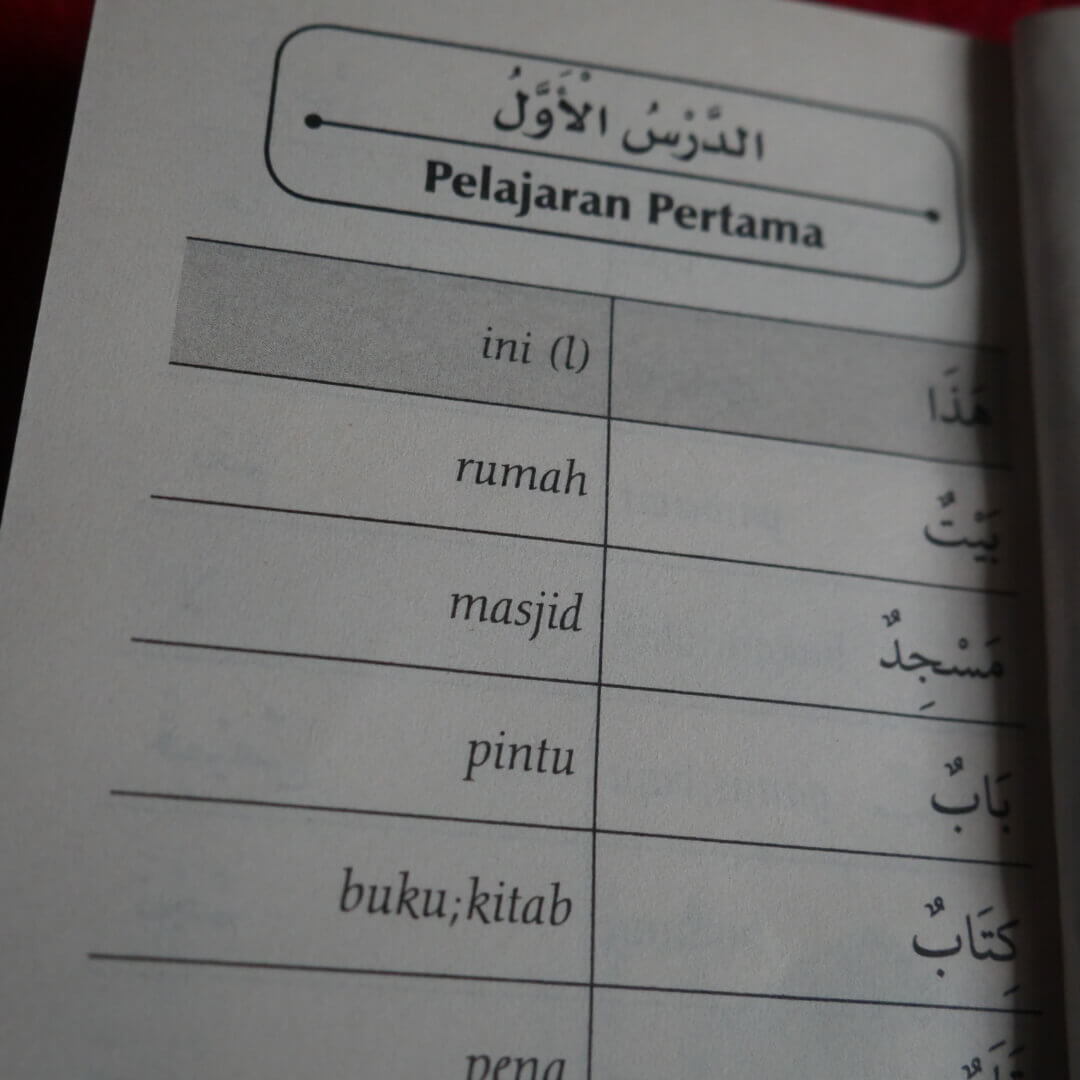 الدَّرْسُ الْأَوَّلُ
Pelajaran Pertama
ini (l) هَذَا
rumah بَيْتٌ
masjid مَسْجِدٌ
pintu بَابٌ
buku;kitab كِتَابٌ
pena